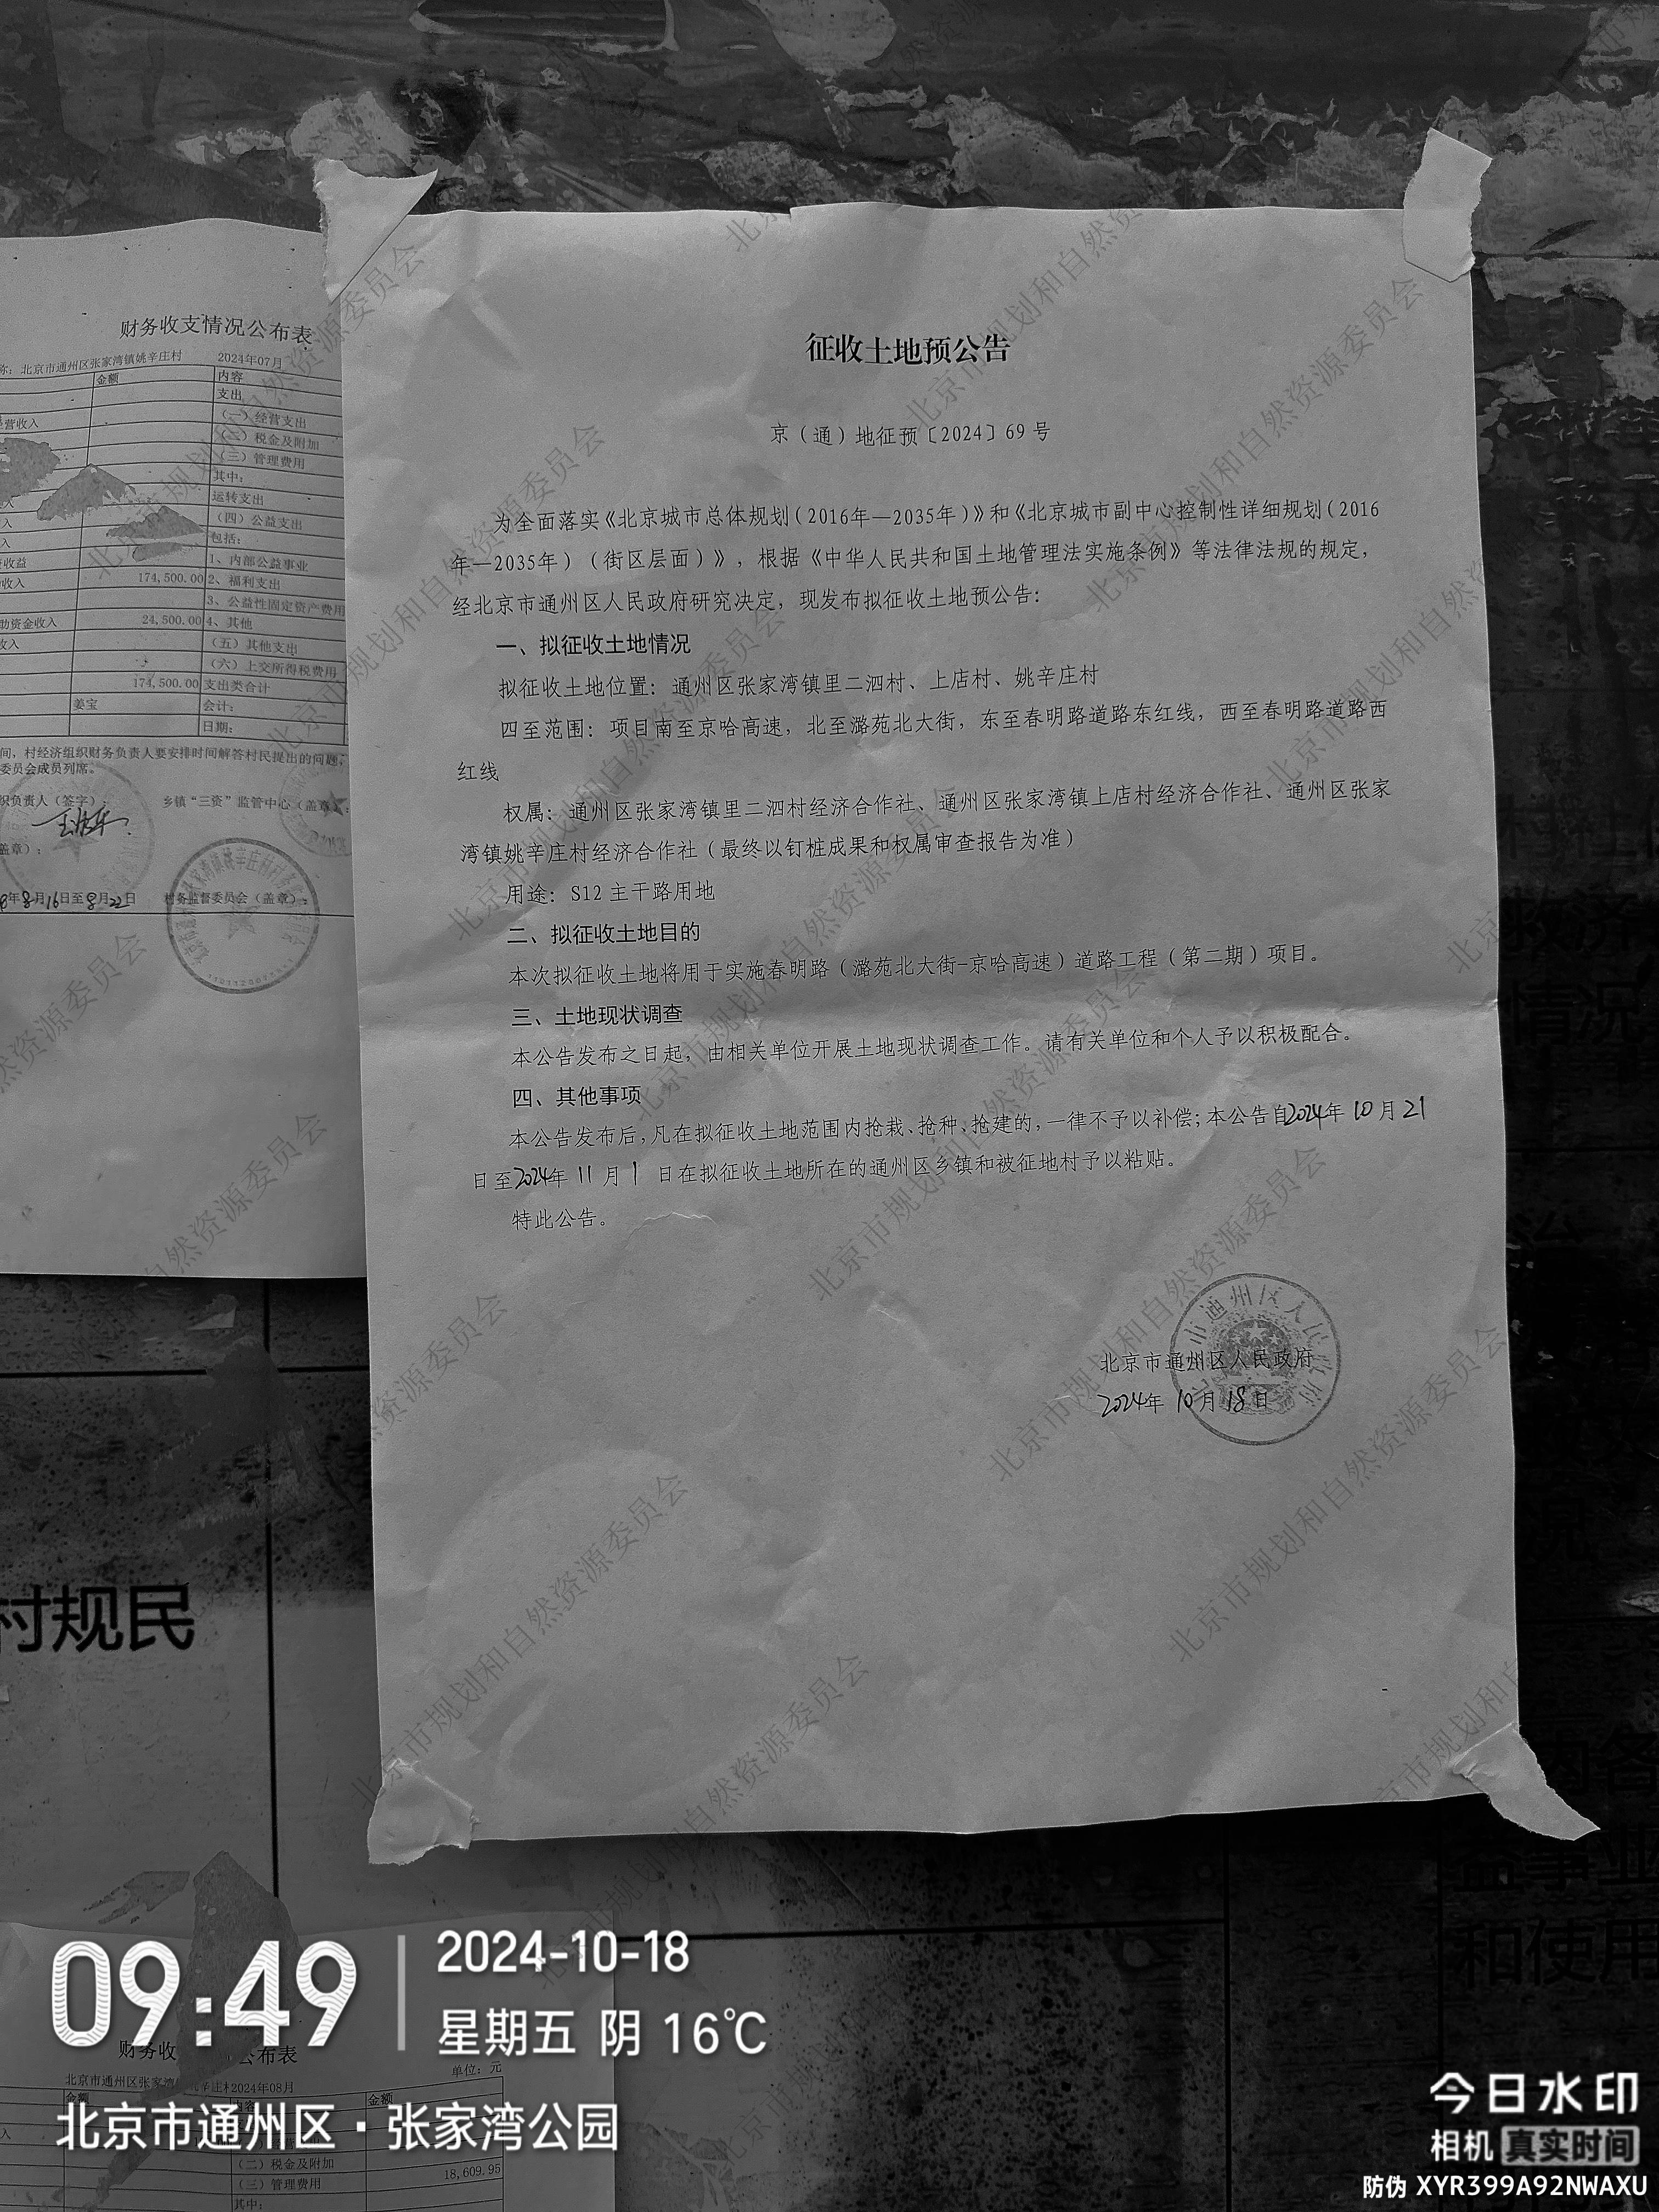 征收土地预公告
京（通）地征预〔2024〕69号
为全面落实《北京城市总体规划（2016年—2035年）》和《北京城市副中心控制性详细规划（2016
年—2035年）（街区层面）》，根据《中华人民共和国土地管理法实施条例》等法律法规的规定，
经北京市通州区人民政府研究决定，现发布拟征收土地预公告：
一、拟征收土地情况
拟征收土地位置：通州区张家湾镇里二泗村、上店村、姚辛庄村
四至范围：项目南至京哈高速，北至潞苑北大街，东至春明路道路东红线，西至春明路道路西
红线
权属：通州区张家湾镇里二泗村经济合作社、通州区张家湾镇上店村经济合作社、通州区张家
湾镇姚辛庄村经济合作社（最终以钉桩成果和权属审查报告为准）
用途：S12主干路用地
二、拟征收土地目的
本次拟征收土地将用于实施春明路（潞苑北大街-京哈高速）道路工程（第二期）项目。
三、土地现状调查
本公告发布之日起，由相关单位开展土地现状调查工作。请有关单位和个人予以积极配合。
四、其他事项
本公告发布后，凡在拟征收土地范围内抢栽、抢种、抢建的，一律不予以补偿；本公告自2024年10月21
日至2024年11月1日在拟征收土地所在的通州区乡镇和被征地村予以粘贴。
特此公告。
北京市通州区人民政府
2024年10月18日
北京市规划和自然资源委员会
财务收支情况公布表
称：北京市通州区张家湾镇姚辛庄村 2024年07月
金额 内容
支出
经营收入 （一）经营支出
（二）税金及附加
（三）管理费用
其中：
运转支出
入 （四）公益支出
入 包括：
收益 1、内部公益事业
收入 174,500.00 2、福利支出
3、公益性固定资产费用
助资金收入 24,500.00 4、其他
收入 （五）其他支出
（六）上交所得税费用
174,500.00 支出类合计
姜宝 会计：
日期：
间，村经济组织财务负责人要安排时间解答村民提出的问题，
委员会成员列席。
织负责人（签字）： 乡镇“三资”监管中心（盖章）：
盖章）：
年8月16日至8月22日 村务监督委员会（盖章）：
村规民
救济
情况
治
和使用
09:49
2024-10-18
星期五 阴 16℃
财务收 公布表
单位：元
北京市通州区张家湾 2024年08月
金额 内容 金额
北京市通州区·张家湾公园
（二）税金及附加
（三）管理费用 18,609.95
其中：
今日水印
相机 真实时间
防伪 XYR399A92NWAXU